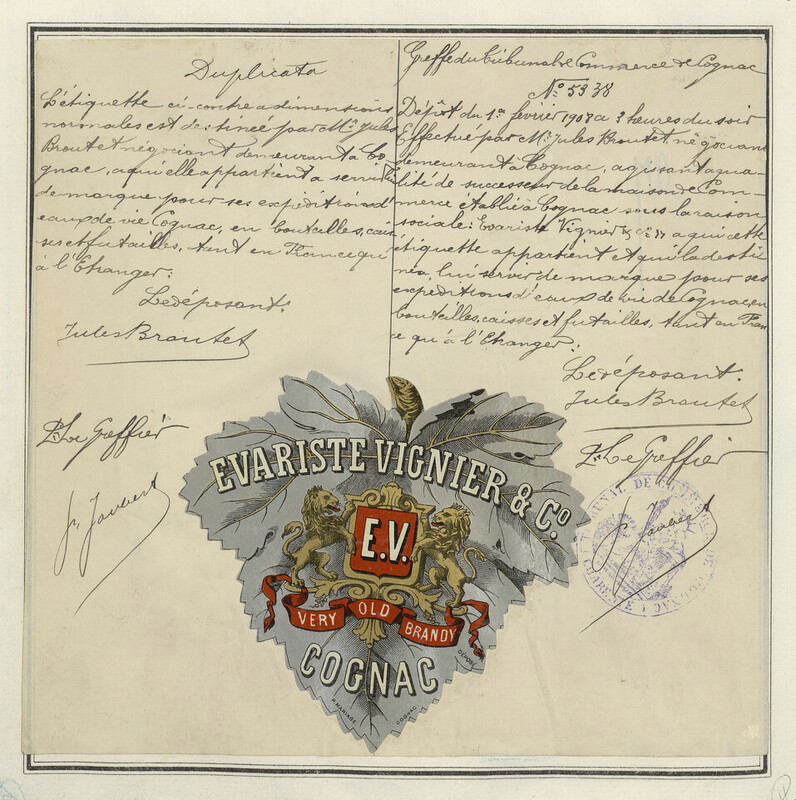 Duplicata
L'étiquette ci-contre a dimensions
normales est destinée par Mr. Jules
Broutet négociant demeurant à Co
gnac, a qui elle appartient a servir
de marque pour ses expeditions d'
eaux de vie Cognac, en bouteilles, cais
ses et futailles, tant en France qu'
à l'Etranger:
Le déposant.
Jules Broutet
Pr. Le Greffier
Greffe du Tribunal de Commerce de Cognac
No. 5338
Dépôt du 1er février 1908 a 3 heures du soir
Effectué par Mr. Jules Broutet, négociant
demeurant à Cognac, agissant a qua-
lité de successeur de la maison de Com-
merce établie à Cognac sous la raison
sociale: Evariste Vignier & Cie a qui cette
étiquette appartient et qui la desti
née, lui servir de marque pour ses
expeditions d'eaux de vie de Cognac, en
bouteilles, caisses et futailles, tant en Fran
ce qu'à l'Etranger:
Le déposant.
Jules Broutet
Pr. Le Greffier
EVARISTE VIGNIER & Co.
E.V.
VERY OLD BRANDY
COGNAC
DÉPOSÉ
P. MARIAGE COGNAC
TRIBUNAL DE
CHARENTE